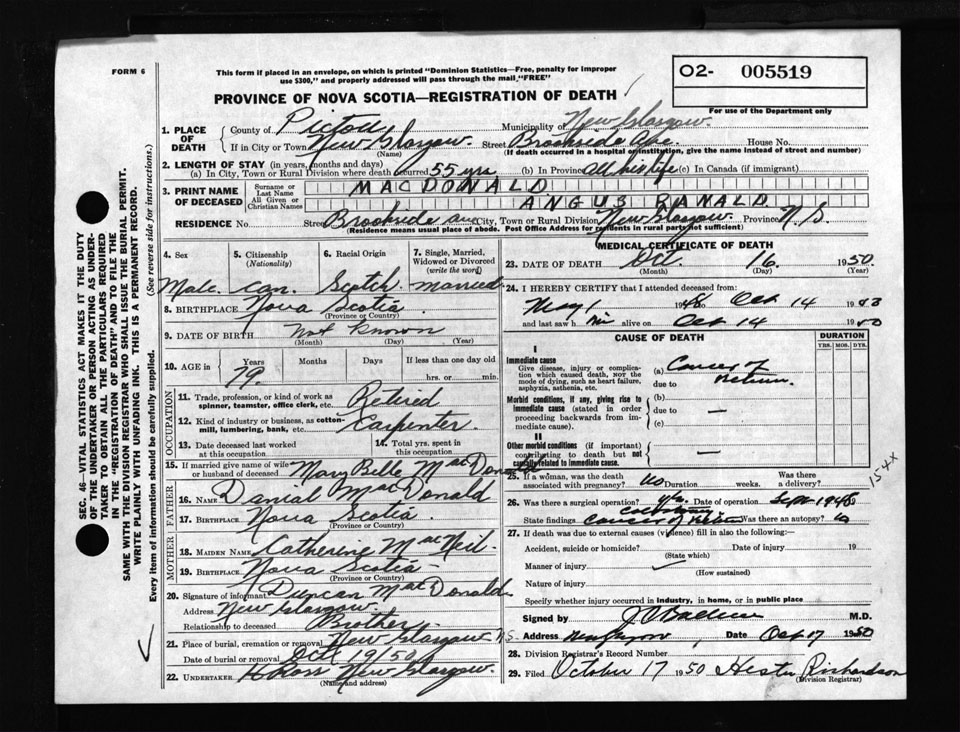 FORM 6
This form if placed in an envelope, on which is printed "Dominion Statistics—Free, penalty for improper
use $300," and properly addressed will pass through the mail "FREE"
O2- 005519
PROVINCE OF NOVA SCOTIA—REGISTRATION OF DEATH
For use of the Department only
1. PLACE OF DEATH
County of Pictou Municipality of New Glasgow.
If in City or Town New Glasgow. Street Brookside Ave. House No.
(Name) (If death occurred in a hospital or institution, give the name instead of street and number)
2. LENGTH OF STAY (in years, months and days)
(a) In City, Town or Rural Division where death occurred 55 yrs (b) In Province All his life (c) In Canada (if immigrant)
3. PRINT NAME OF DECEASED
Surname or Last Name MACDONALD
All Given or Christian Names ANGUS RANALD
RESIDENCE No. Street Brookside ave City, Town or Rural Division New Glasgow. Province N.S.
(Residence means usual place of abode. Post Office Address for residents in rural parts not sufficient)
4. Sex 5. Citizenship (Nationality) 6. Racial Origin 7. Single, Married, Widowed or Divorced (write the word)
Male. Can. Scotch married
8. BIRTHPLACE Nova Scotia
(Province or Country)
9. DATE OF BIRTH Not Known
(Month) (Day) (Year)
10. AGE in Years Months Days If less than one day old
79. hrs. or min.
OCCUPATION
11. Trade, profession, or kind of work as spinner, teamster, office clerk, etc. Retired
12. Kind of industry or business, as cotton-mill, lumbering, bank, etc. Carpenter
13. Date deceased last worked at this occupation 14. Total yrs. spent in this occupation
15. If married give name of wife or husband of deceased Mary Belle MacDonald
FATHER
16. NAME Danial MacDonald
17. BIRTHPLACE Nova Scotia.
(Province or Country)
MOTHER
18. MAIDEN NAME Catherine MacNeil.
19. BIRTHPLACE Nova Scotia
(Province or Country)
20. Signature of informant Duncan MacDonald
Address New Glasgow.
Relationship to deceased Brother
21. Place of burial, cremation or removal New Glasgow N.S.
Date of burial or removal Oct 19/50
22. UNDERTAKER H Ross New Glasgow.
(Name and address)
MEDICAL CERTIFICATE OF DEATH
23. DATE OF DEATH Oct. 16. 1950.
(Month) (Day) (Year)
24. I HEREBY CERTIFY that I attended deceased from:
May 1 1948 to Oct 14 19
and last saw h im alive on Oct 14 1950
CAUSE OF DEATH DURATION
YRS. MOS. DYS.
I
Immediate cause
Give disease, injury or complication which caused death, NOT the mode of dying, such as heart failure, asphyxia, asthenia, etc.
(a) Cancer of
due to Rectum.
Morbid conditions, if any, giving rise to immediate cause (stated in order proceeding backwards from immediate cause).
(b)
due to —
(c)
II
Other morbid conditions (if important) contributing to death but not causally related to immediate cause. —
154xx
25. If a woman, was the death associated with pregnancy? No Duration weeks. Was there a delivery?
26. Was there a surgical operation? yes. Date of operation Sept 1948
Colostomy
State findings Cancer of Rectum Was there an autopsy?
27. If death was due to external causes (violence) fill in also the following:—
Accident, suicide or homicide? Date of injury 19
(State which)
Manner of injury
(How sustained)
Nature of injury
Specify whether injury occurred in industry, in home, or in public place
Signed by M.D.
Address New Glasgow Date Oct 17 1950
28. Division Registrar's Record Number
29. Filed October 17 1950 Hester Richardson
(Division Registrar)
SEC. 46—VITAL STATISTICS ACT MAKES IT THE DUTY
OF THE UNDERTAKER OR PERSON ACTING AS UNDER-
TAKER TO OBTAIN ALL THE PARTICULARS REQUIRED
IN THE "REGISTRATION OF DEATH" AND TO FILE THE
SAME WITH THE DIVISION REGISTRAR WHO SHALL ISSUE THE BURIAL PERMIT.
WRITE PLAINLY WITH UNFADING INK. THIS IS A PERMANENT RECORD.
Every item of information should be carefully supplied. (See reverse side for instructions.)